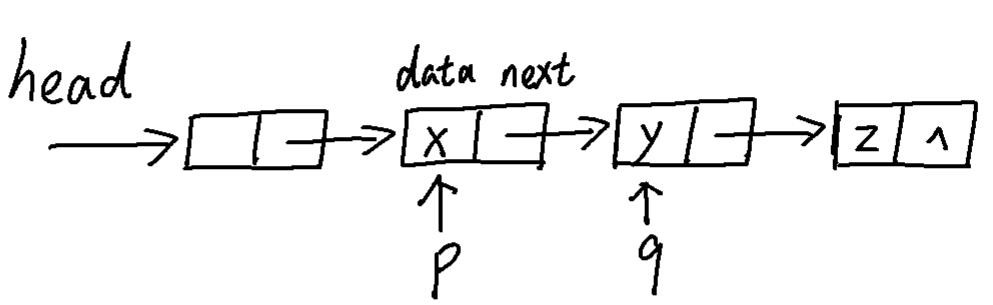 head
data next
x y z ∧
p q